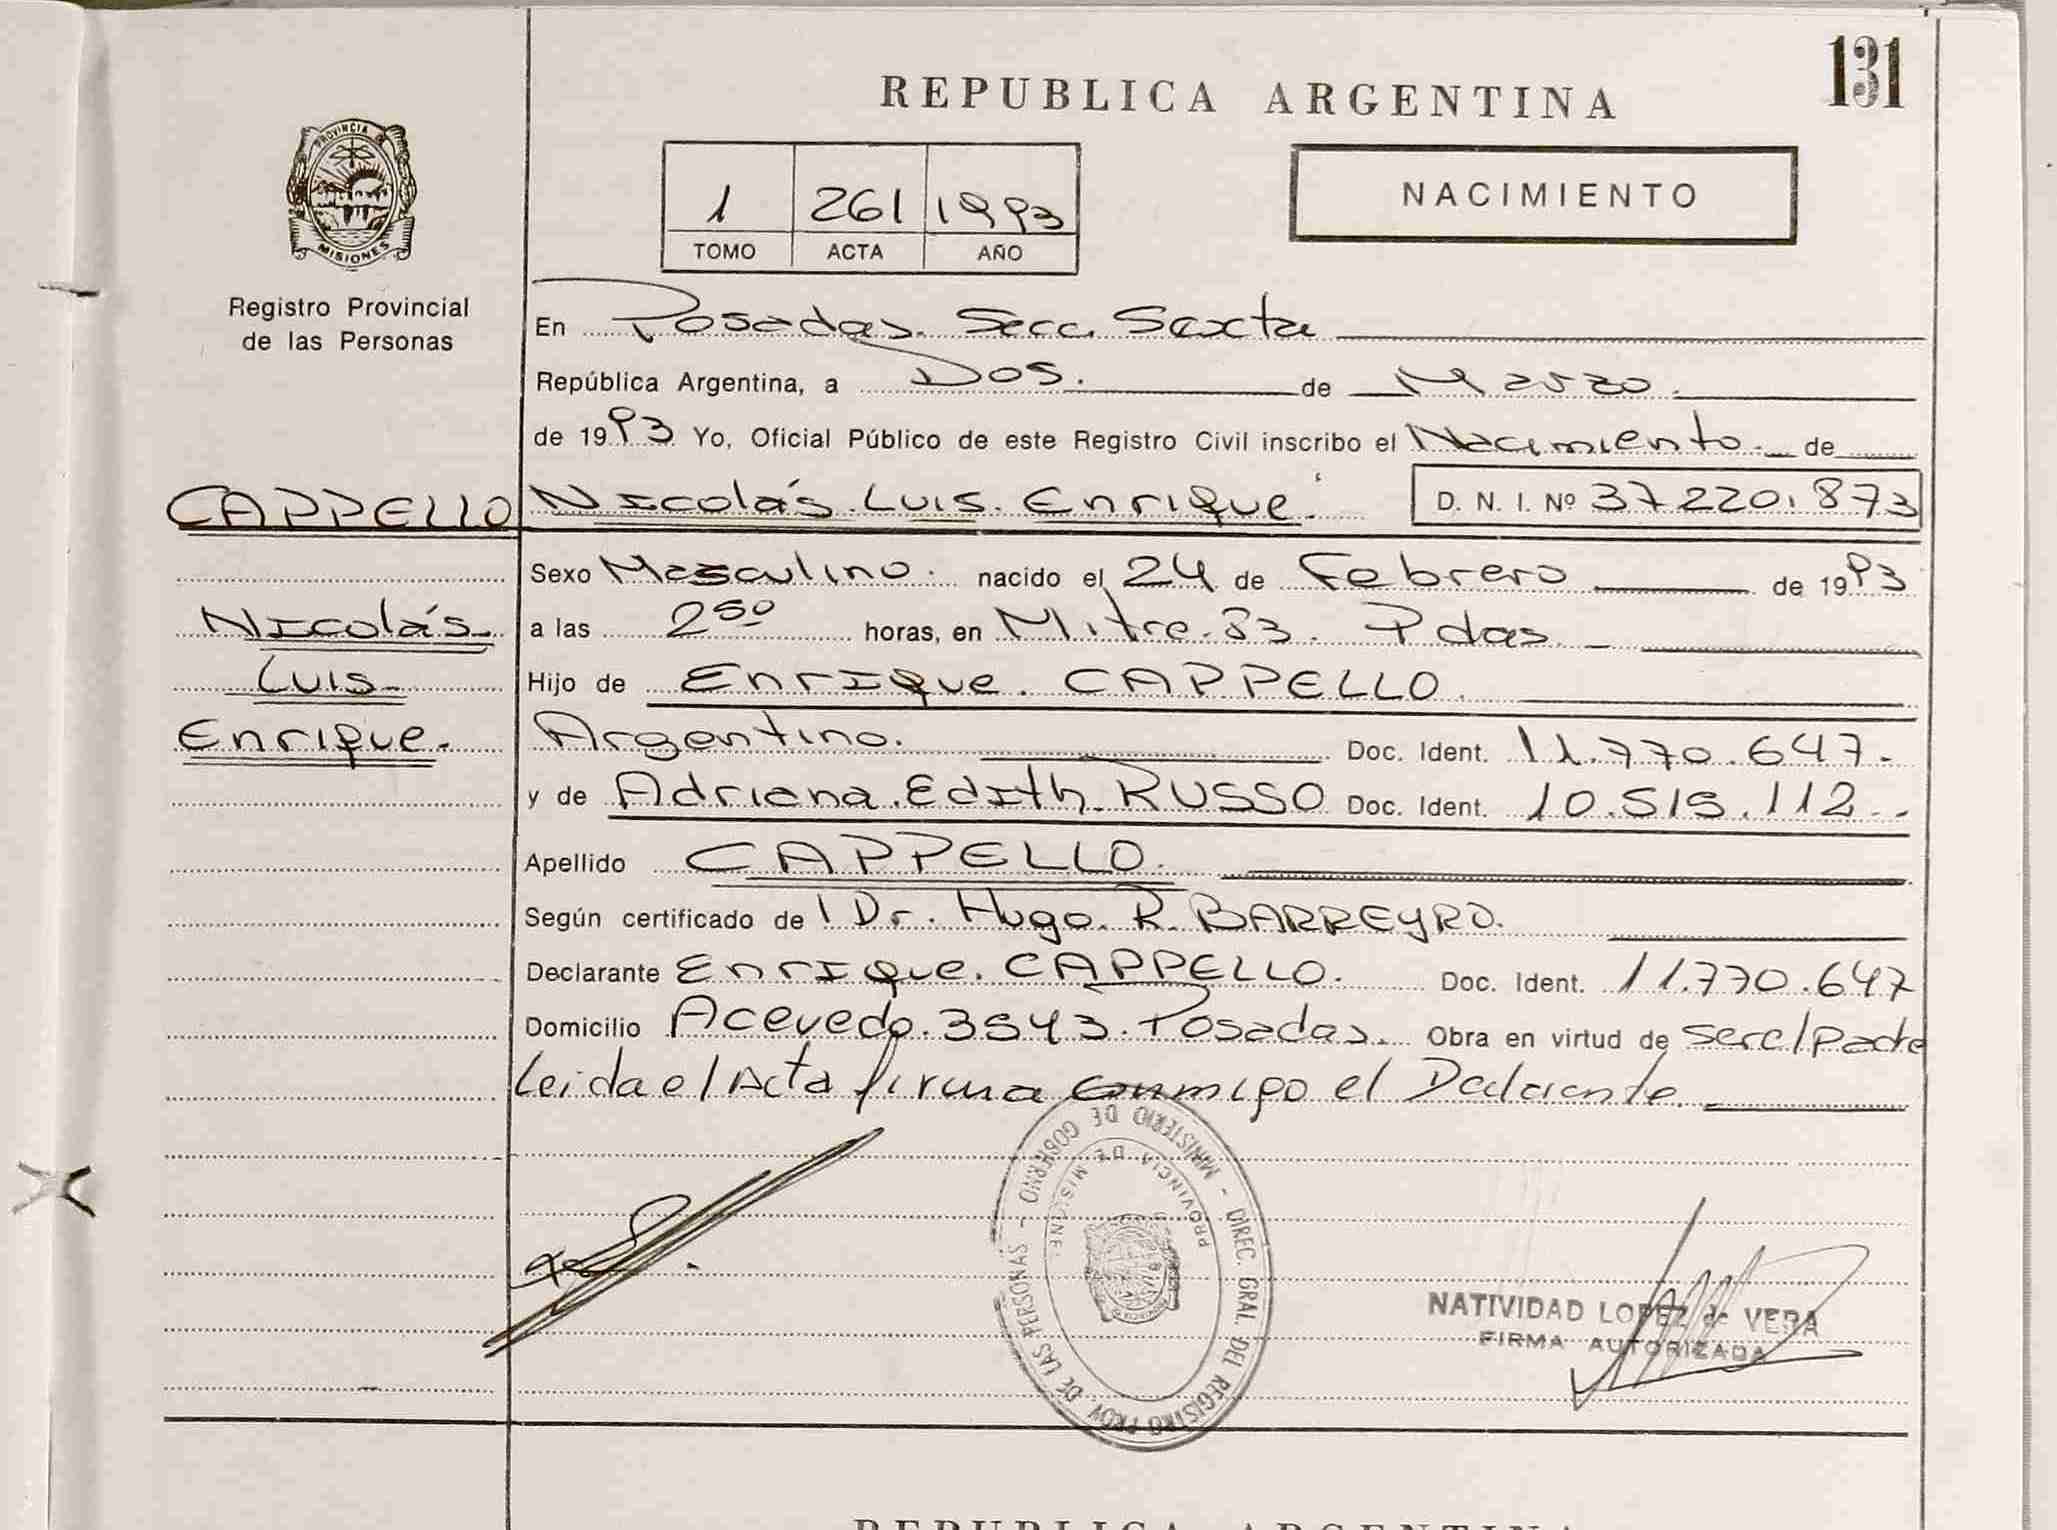 131
REPUBLICA ARGENTINA
PROVINCIA DE
MISIONES
Registro Provincial
de las Personas
1 261 1993
TOMO ACTA AÑO
NACIMIENTO
En Posadas. Secc. Sexta
República Argentina, a Dos. de Marzo.
de 1993 Yo, Oficial Público de este Registro Civil inscribo el Nacimiento. de
CAPPELLO Nicolás. Luis. Enrique. D. N. I. Nº 37220.873
Sexo Masculino. nacido el 24 de Febrero de 1993
Nicolás a las 2⁵⁰ horas, en Mitre. 83. Pdas.
Luis Hijo de Enrique. CAPPELLO.
Enrique. Argentino. Doc. Ident. 11.770.647.
y de Adriana. Edith. RUSSO Doc. Ident. 10.515.112.
Apellido CAPPELLO.
Según certificado de l Dr. Hugo. R. BARREYRO.
Declarante Enrique. CAPPELLO. Doc. Ident. 11.770.647
Domicilio Acevedo. 3543. Posadas. Obra en virtud de ser el padre
Leida el Acta firma conmigo el Declarante.
MINISTERIO DE GOBIERNO - DIREC. GRAL. DEL REGISTRO PROV. DE LAS PERSONAS -
PROVINCIA DE MISIONES
NATIVIDAD LOPEZ de VERA
FIRMA AUTORIZADA
REPUBLICA ARGENTINA